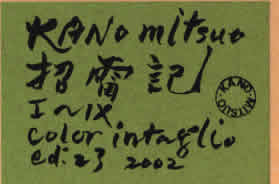 KANO mitsuo
招雷記
I~IX
color intaglio
ed: 23 2002
KANO・MITSUO・